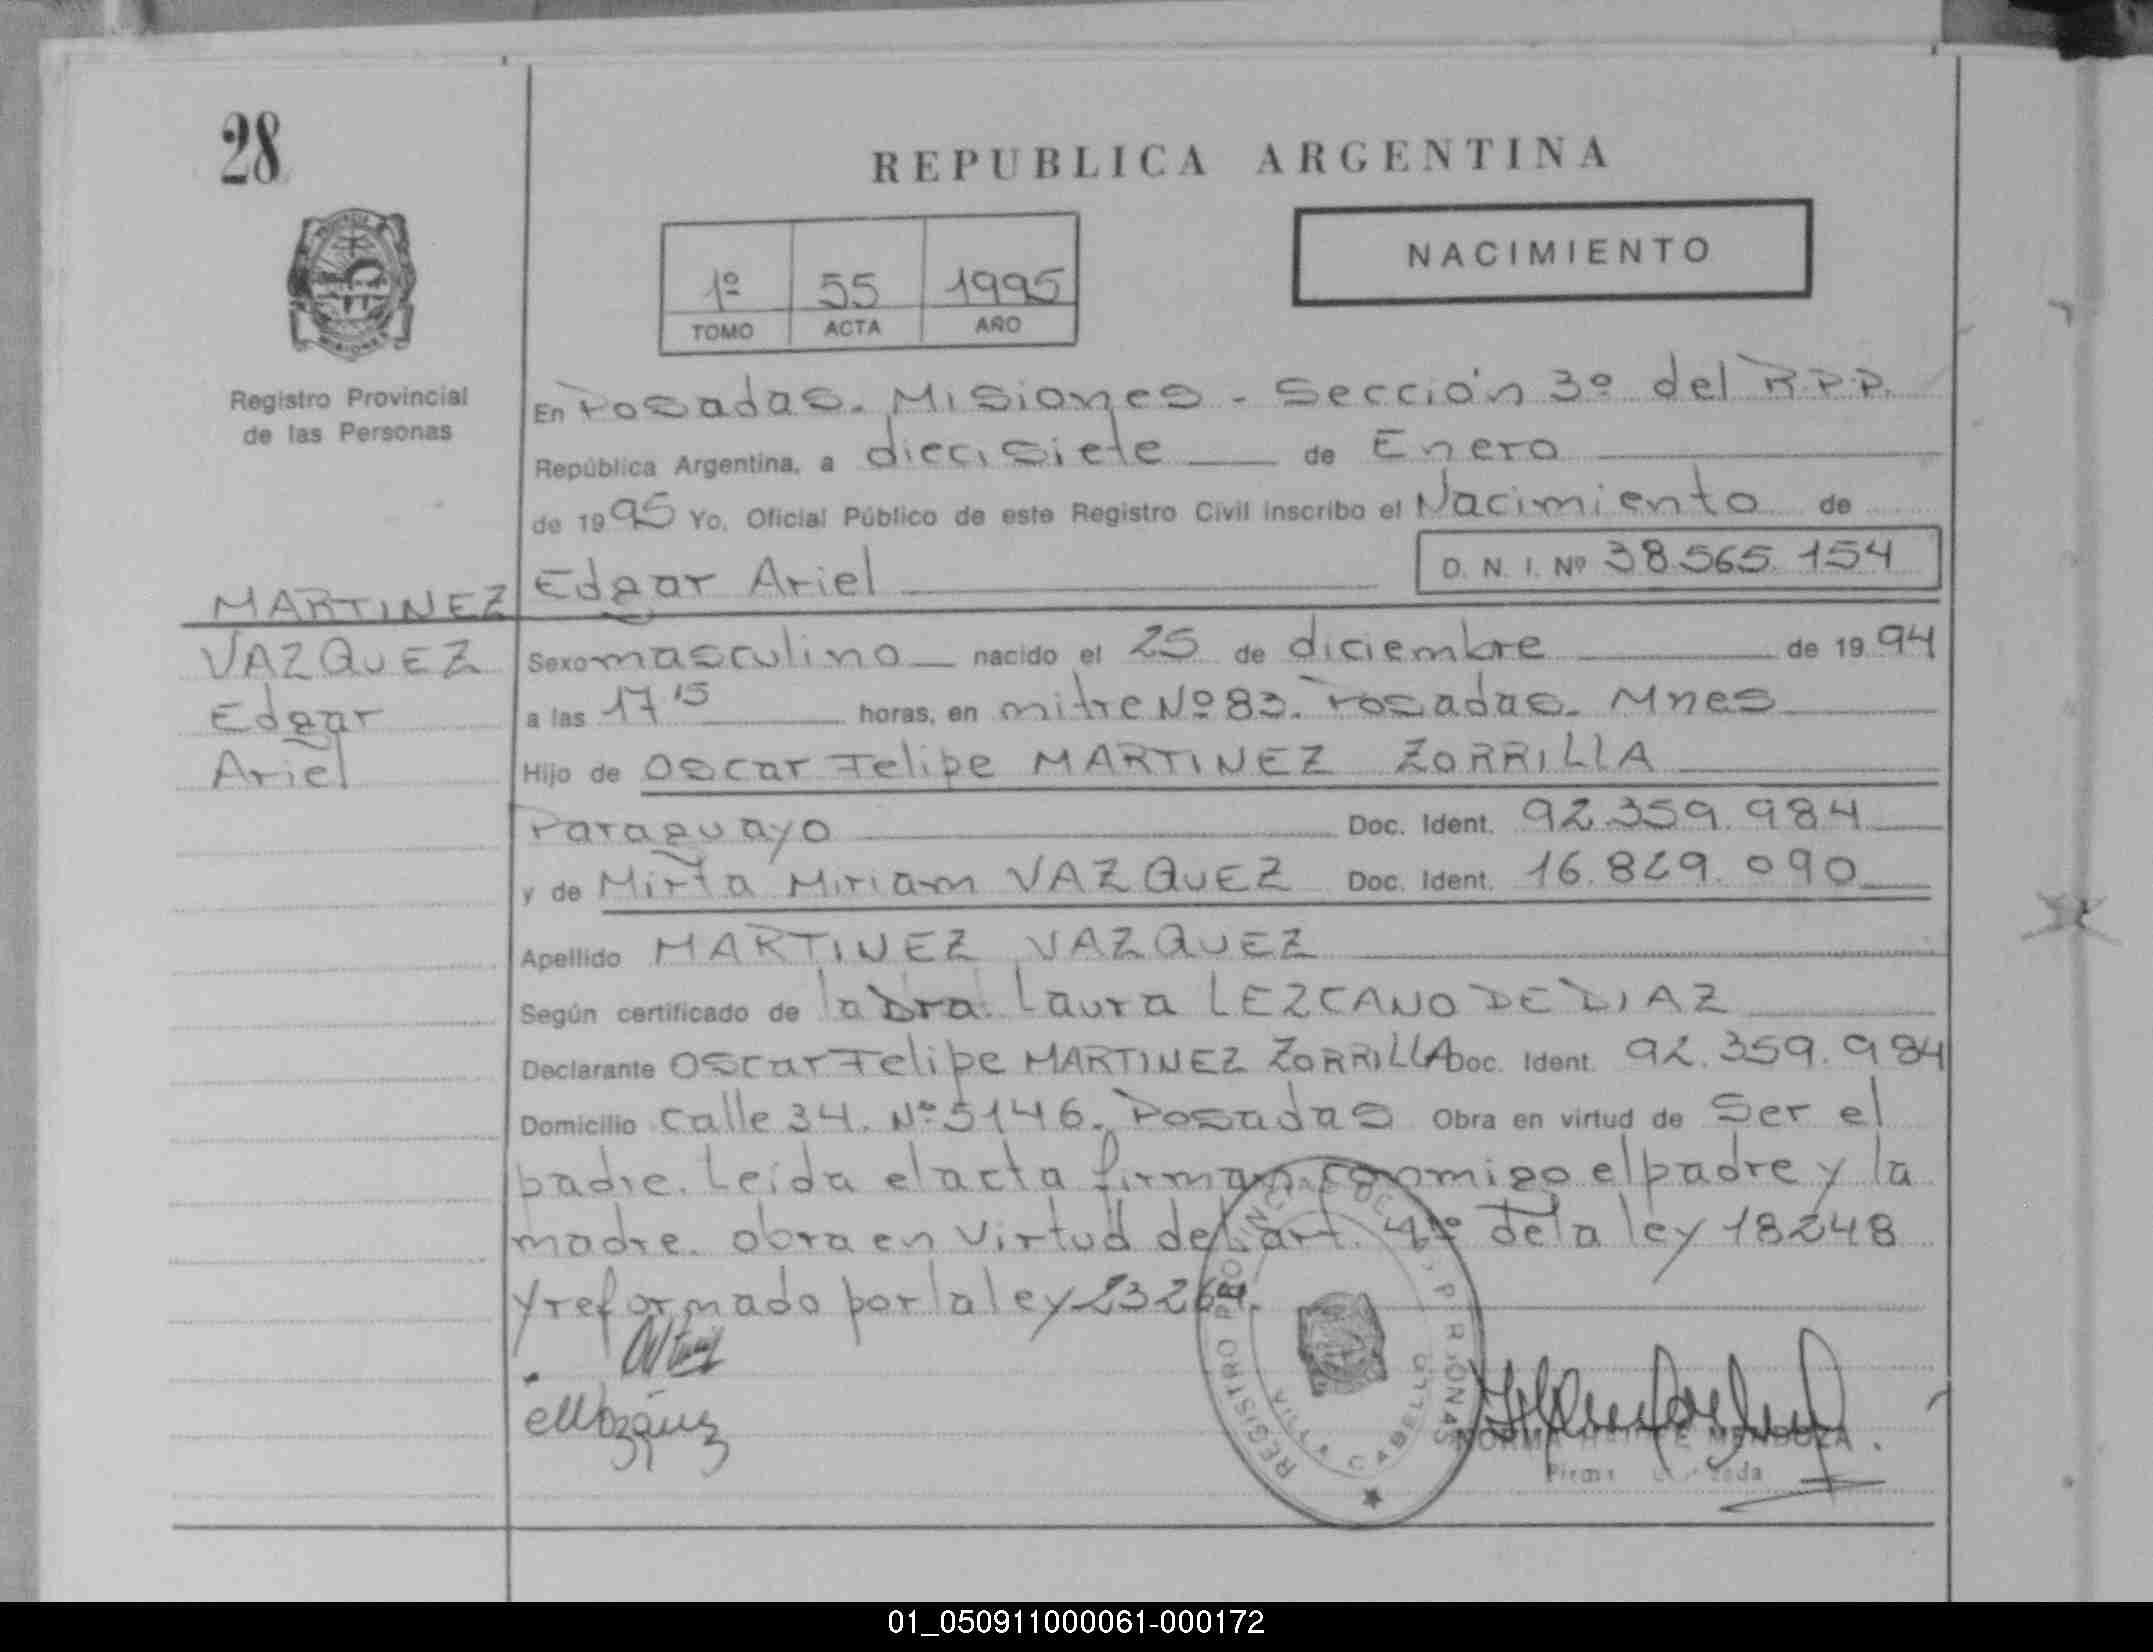 28
REPUBLICA ARGENTINA
NACIMIENTO
1º 55 1995
TOMO ACTA AÑO
Registro Provincial
de las Personas
En Posadas. Misiones - Sección 3º del R.P.P.
República Argentina, a diecisiete de Enero
de 1995 Yo, Oficial Público de este Registro Civil inscribo el Nacimiento de
Edgar Ariel D. N. I. Nº 38.565.154
MARTINEZ
VAZQUEZ
Edgar
Ariel
Sexo masculino nacido el 25 de diciembre de 1994
a las 17 15 horas, en mitre Nº 83. Posadas. Mnes
Hijo de Oscar Felipe MARTINEZ ZORRILLA
Paraguayo Doc. Ident. 92.359.984
y de Mirta Miriam VAZQUEZ Doc. Ident. 16.829.090
Apellido MARTINEZ VAZQUEZ
Según certificado de la Dra. Laura LEZCANO DE DIAZ
Declarante Oscar Felipe MARTINEZ ZORRILLA Doc. Ident. 92.359.984
Domicilio Calle 34. Nº 5146. Posadas Obra en virtud de Ser el
padre. Leida el acta firman conmigo el padre y la
madre. obra en virtud del art. 4º de la ley 18248
y reformado por la ley 23264.
REGISTRO PROVINCIAL DE LAS PERSONAS
VILLA CABELLO
MENDOZA
01_050911000061-000172